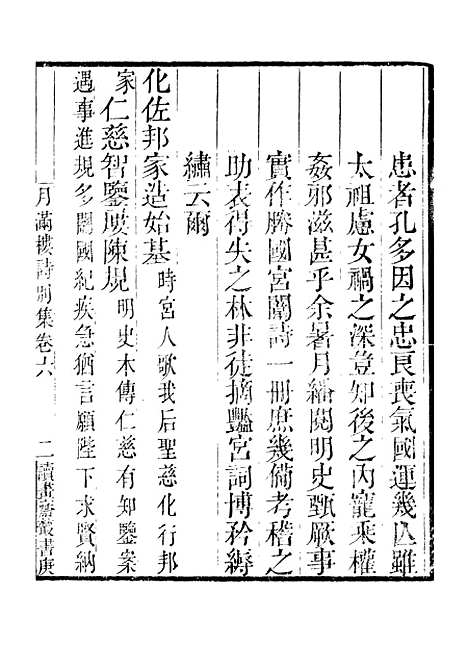 患者孔多因之忠良喪氣國運幾亡雖
太祖慮女禍之深豈知後之內寵乘權
姦邪滋甚乎余暑月繙閱明史甄厥事
實作勝國宮闈詩一冊庶幾備考稽之
助表得失之林非徒摛豔宮詞博矜縟
繡云爾
化佐邦家造始基時宮人歌我后聖慈化行邦
家仁慈智鑒拔陳規明史本傳仁慈有知鑒案
遇事進規多關國紀疾急猶言願陛下求賢納
月滿樓詩別集卷六 二 讀畫齋叢書庚